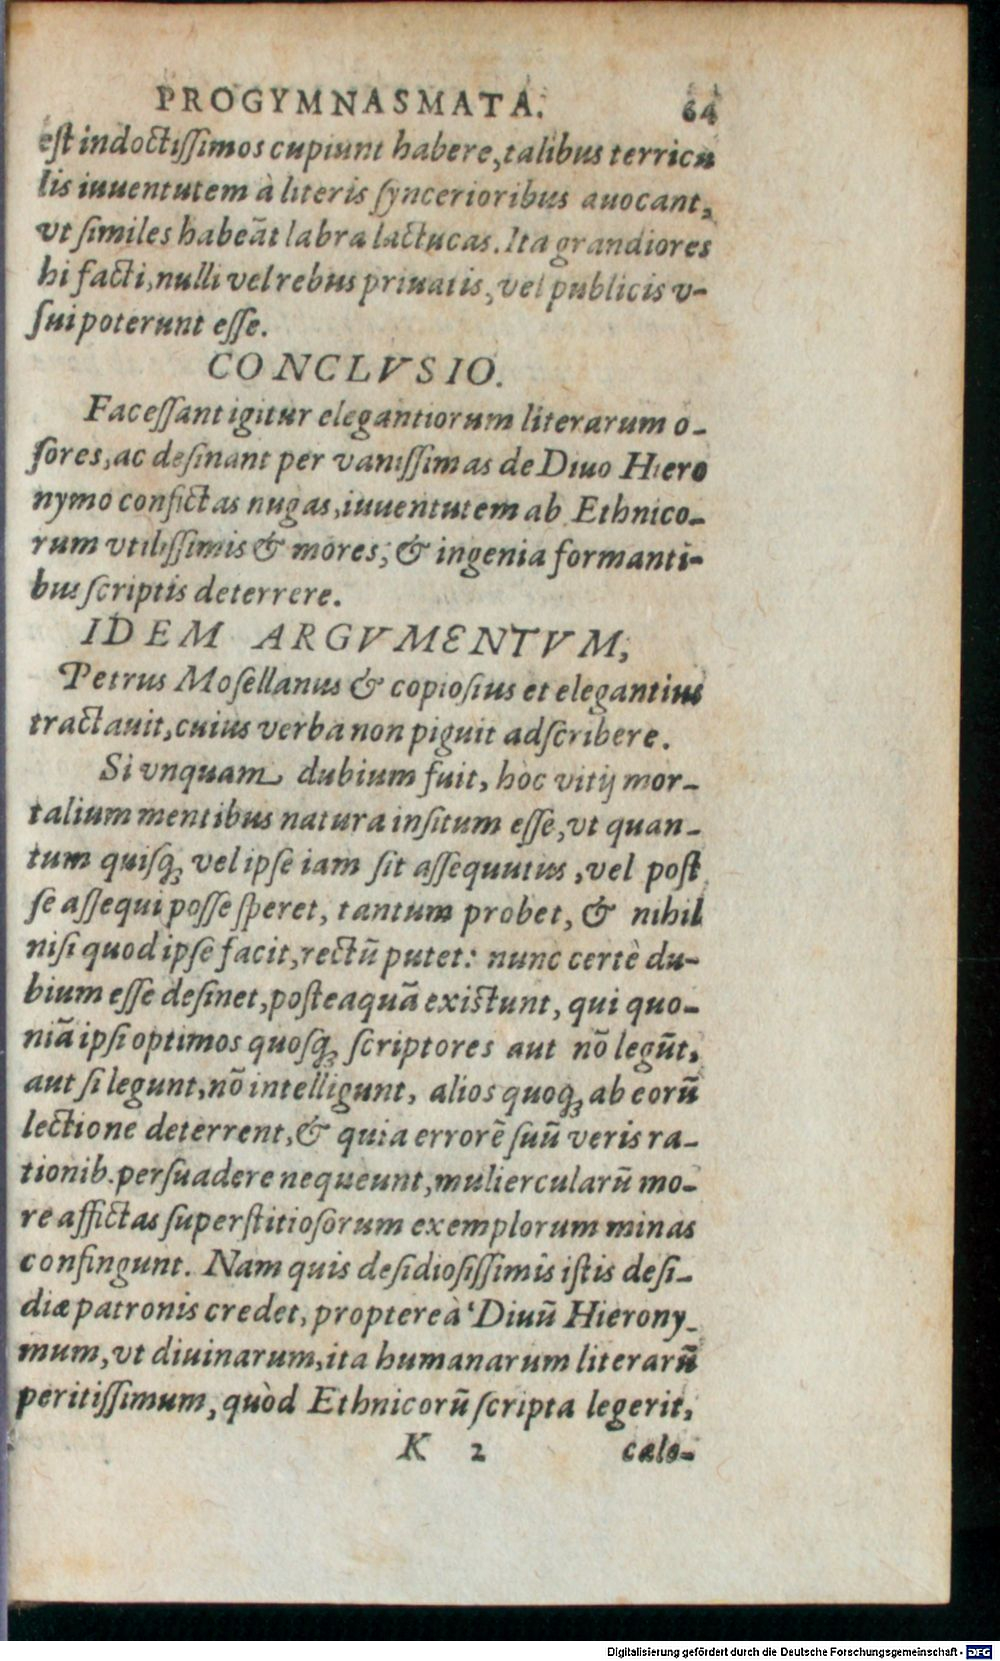 PROGYMNASMATA. 64
est indoctissimos cupiunt habere, talibus terricu
lis iuuentutem à literis syncerioribus auocant,
vt similes habeāt labra lactucas. Ita grandiores
hi facti, nulli vel rebus priuatis, vel publicis v-
sui poterunt esse.
CONCLVSIO.
Facessant igitur elegantiorum literarum o-
sores, ac desinant per vanissimas de Diuo Hiero
nymo confictas nugas, iuuentutem ab Ethnico-
rum vtilissimis & mores, & ingenia formanti-
bus scriptis deterrere.
IDEM ARGVMENTVM,
Petrus Mosellanus & copiosius et elegantius
tractauit, cuius verba non piguit adscribere.
Si vnquam dubium fuit, hoc vitij mor-
talium mentibus natura insitum esse, vt quan-
tum quisq; vel ipse iam sit assequutus, vel post
se assequi posse speret, tantum probet, & nihil
nisi quod ipse facit, rectū putet: nunc certè du-
bium esse desinet, posteaquā existunt, qui quo-
niā ipsi optimos quosq; scriptores aut nō legūt,
aut si legunt, nō intelligunt, alios quoq; ab eorū
lectione deterrent, & quia errorē suū veris ra-
tionib. persuadere nequeunt, muliercularū mo-
re affictas superstitiosorum exemplorum minas
confingunt. Nam quis desidiosissimis istis desi-
diæ patronis credet, proptereà Diuū Hierony-
mum, vt diuinarum, ita humanarum literarū
peritissimum, quòd Ethnicorū scripta legerit,
K 2 cælo-
Digitalisierung gefördert durch die Deutsche Forschungsgemeinschaft - DFG